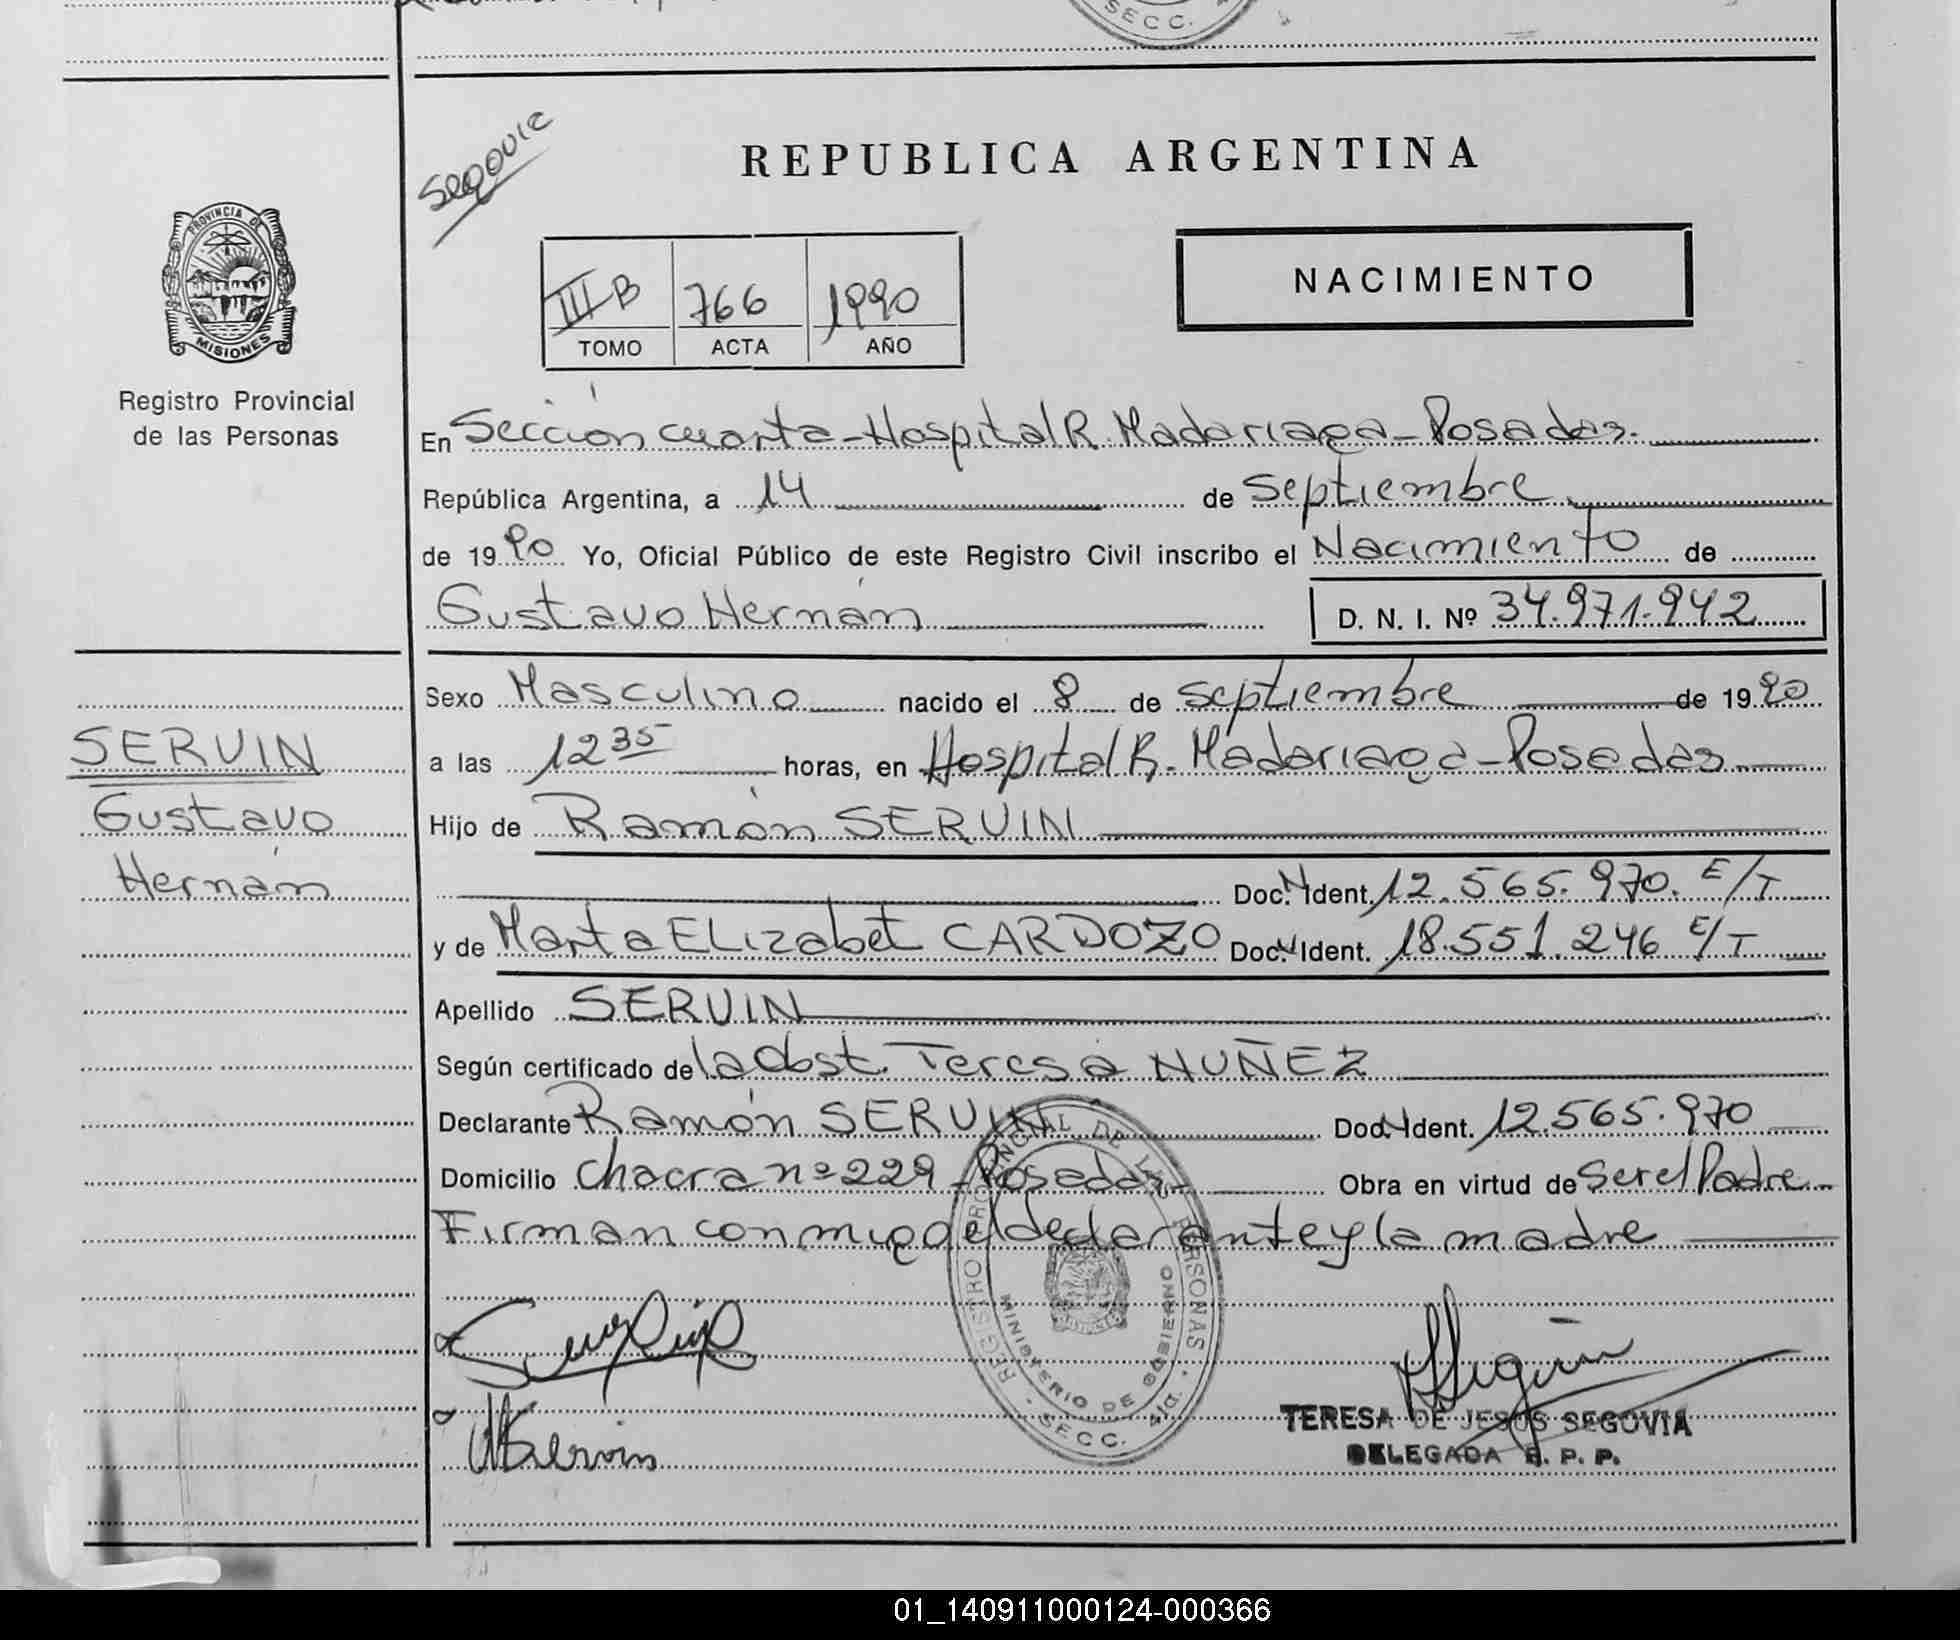 SECC.
Segovia
REPUBLICA ARGENTINA
PROVINCIA DE
MISIONES
III B 766 1990
TOMO ACTA AÑO
NACIMIENTO
Registro Provincial
de las Personas
En Sección cuarta - Hospital R. Madariaga - Posadas.
República Argentina, a 14 de Septiembre
de 1990 Yo, Oficial Público de este Registro Civil inscribo el Nacimiento de
Gustavo Hernán D. N. I. Nº 34.971.942
Sexo Masculino nacido el 8 de septiembre de 1990
a las 12 35 horas, en Hospital R. Madariaga - Posadas
Hijo de Ramón SERVIN
Doc. N Ident. 12.565.970. E/T
y de Marta ELizabet CARDOZO Doc. N Ident. 18.551.246 E/T
Apellido SERVIN
Según certificado de la Obst. Teresa NUÑEZ
Declarante Ramón SERVIN Doc. N Ident. 12.565.970
Domicilio Chacra nº 229 - Posadas - Obra en virtud de Ser el Padre
Firman conmigo el declarante y la madre
SERVIN
Gustavo
Hernán
REGISTRO PROVINCIAL DE LAS PERSONAS
MINISTERIO DE GOBIERNO
SECC. 4ta.
Servin
TERESA DE JESUS SEGOVIA
DELEGADA R. P. P.
01_140911000124-000366